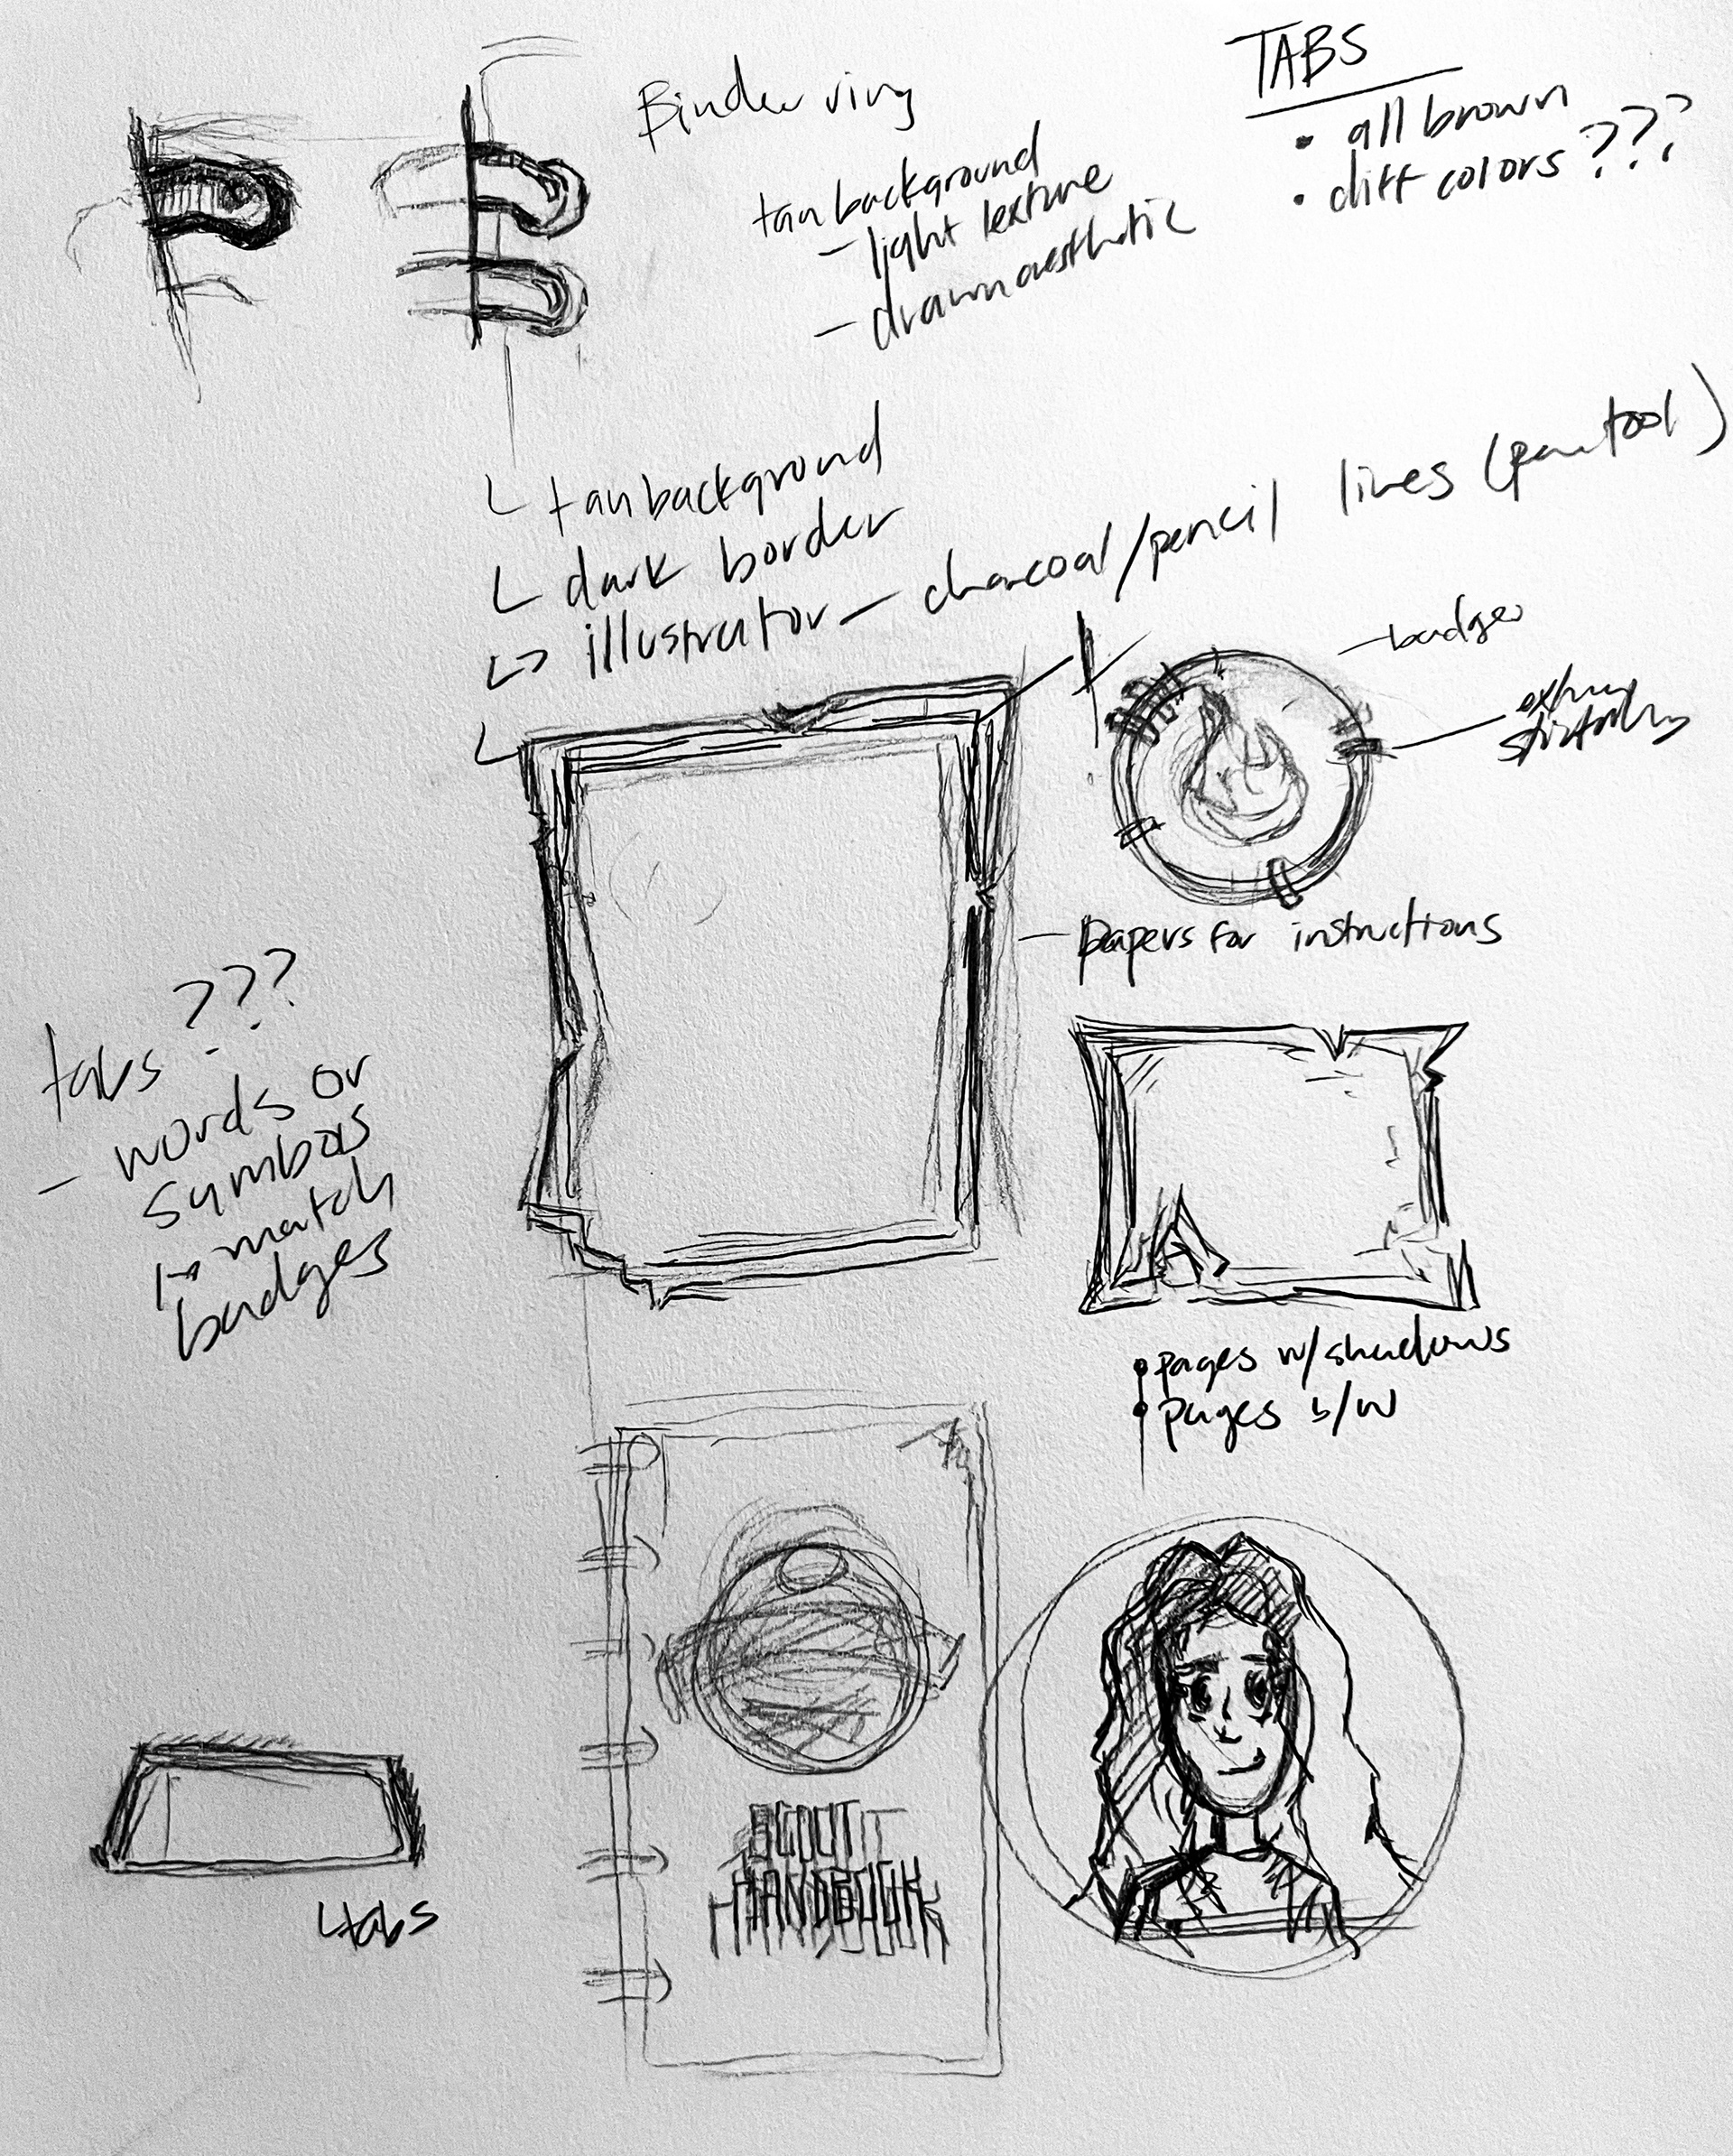 Binder ring
tan background
- light texture
- drawn aesthetic
TABS
• all brown
• diff colors ???
tan background
dark border
illustrator - charcoal/pencil lines (pen tool)
- badges
extra
stitching
- papers for instructions
tabs ???
- words or
symbols
match
badges
• pages w/shadows
• pages b/w
SCOUT
HANDBOOK
tabs